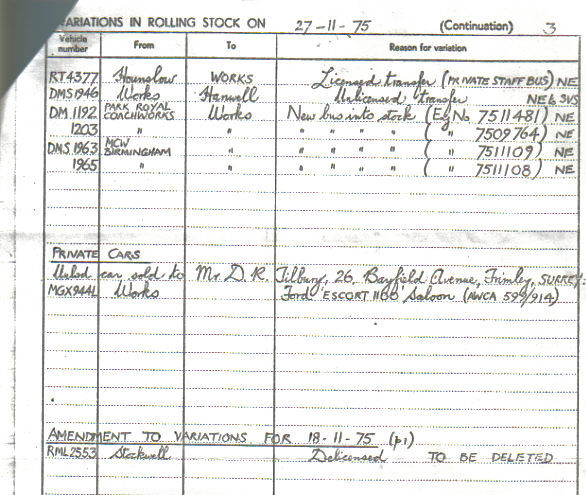 VARIATIONS IN ROLLING STOCK ON 27-11-75 (Continuation) 3
Vehicle number From To Reason for variation
RT4377 Hounslow WORKS Licensed transfer (PRIVATE STAFF BUS) NE
DMS1946 Works Hanwell Unlicensed transfer NE & SVS
DM.1192 PARK ROYAL COACHWORKS Works New bus into stock (Eg No 7511481) NE
1203 " " " " " " ( " 7509764) NE
DMS 1963 MCW BIRMINGHAM " " " " " ( " 7511109) NE
1965 " " " " " " ( " 7511108) NE
PRIVATE CARS
Used car sold to Mr D. R. Tilbury, 26, Bayfield Avenue, Frimley, SURREY:
MGX944L Works Ford 'ESCORT 1100' Saloon (AWCA 599/914)
AMENDMENT TO VARIATIONS FOR 18-11-75 (p1)
RML2553 Stockwell Delicensed TO BE DELETED